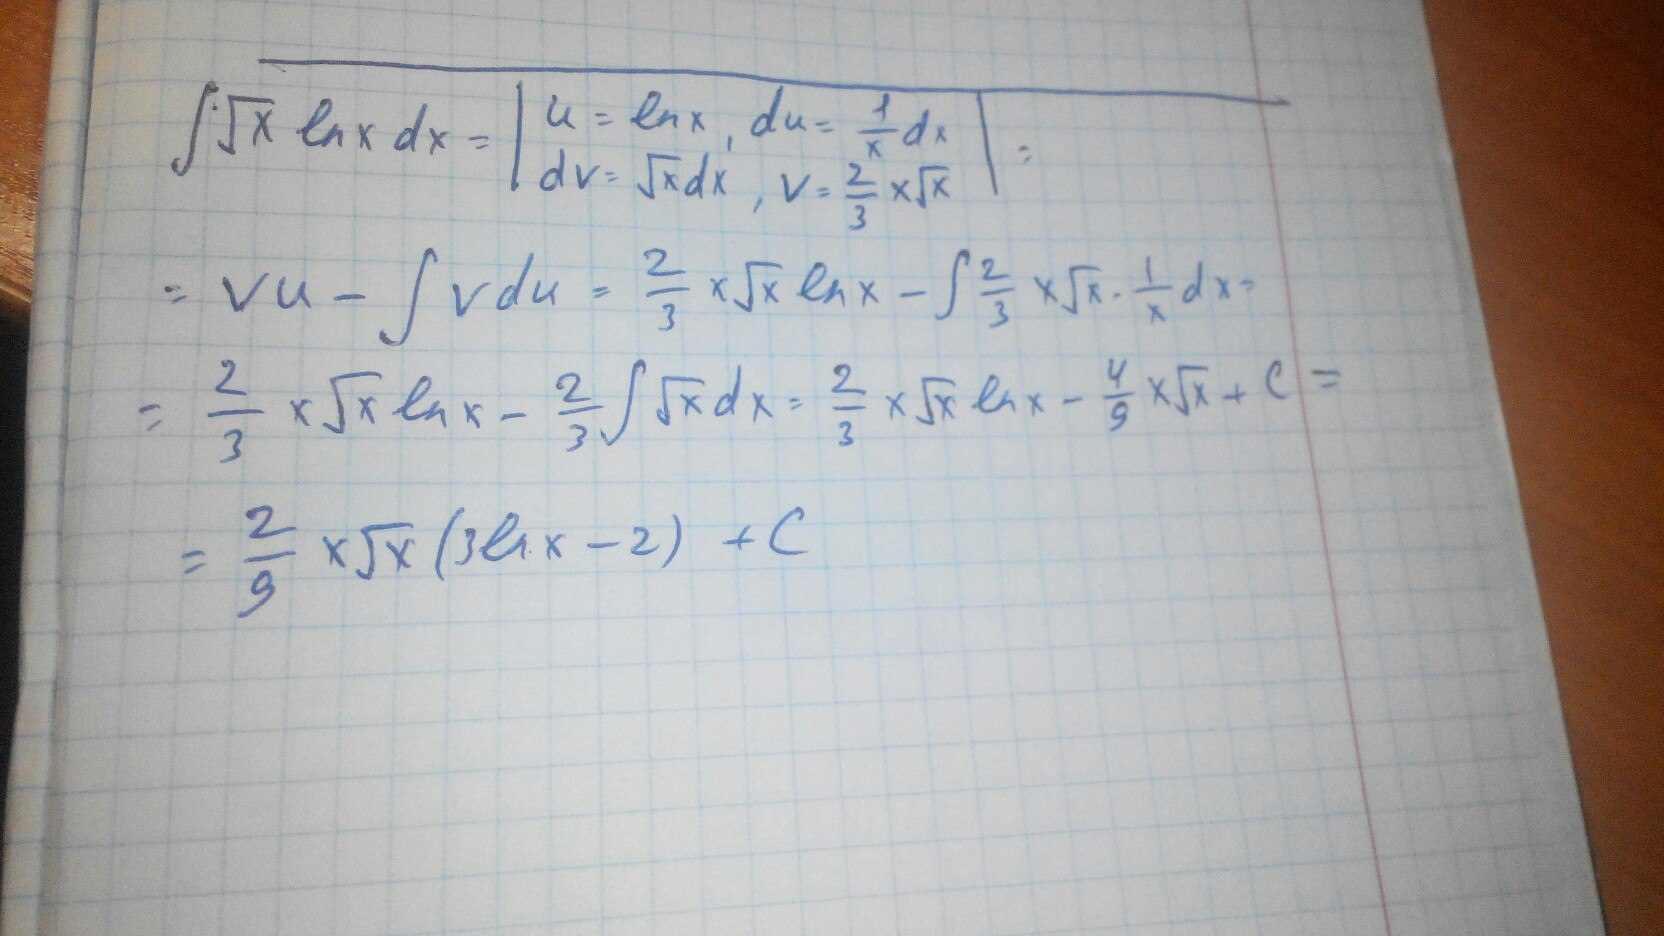 ∫√x ln x dx = | u = ln x, du = 1/x dx | =
| dv = √x dx, v = 2/3 x√x |
= vu - ∫ v du = 2/3 x√x ln x - ∫ 2/3 x√x · 1/x dx =
= 2/3 x√x ln x - 2/3 ∫ √x dx = 2/3 x√x ln x - 4/9 x√x + C =
= 2/9 x√x (3 ln x - 2) + C